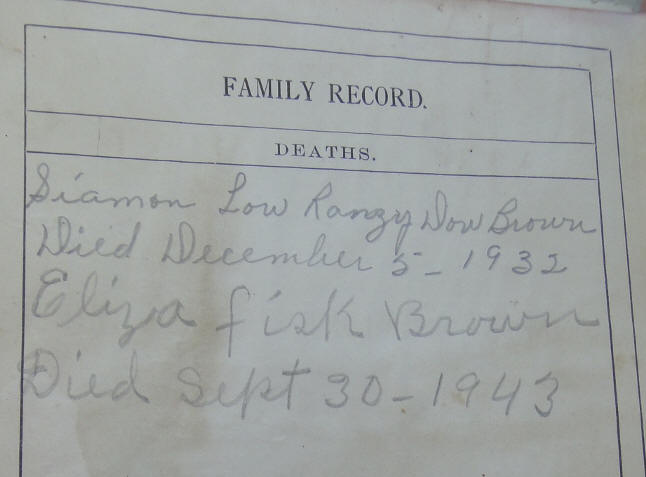 FAMILY RECORD.
DEATHS.
Siamon Low Ranzy Dow Brown
Died December 5- 1932
Eliza fisk Brown
Died Sept 30-1943